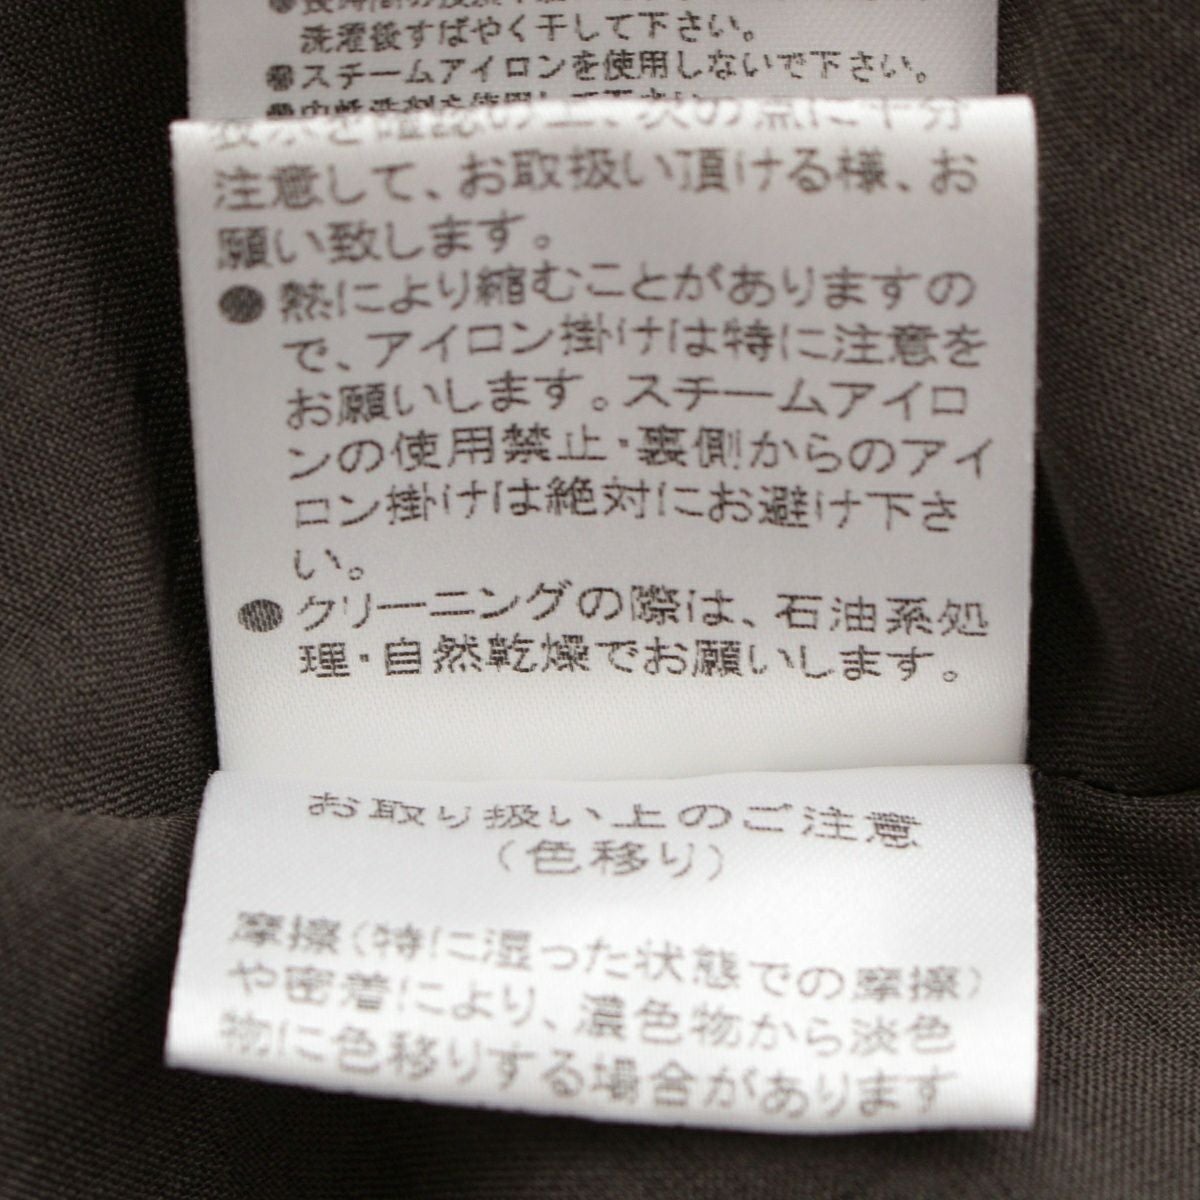 洗濯後すばやく干して下さい。
●スチームアイロンを使用しないで下さい。
表示を確認の上、次の点に十分
注意して、お取扱い頂ける様、お
願い致します。
●熱により縮むことがありますの
で、アイロン掛けは特に注意を
お願いします。スチームアイロ
ンの使用禁止・裏側からのアイ
ロン掛けは絶対にお避け下さ
い。
●クリーニングの際は、石油系処
理・自然乾燥でお願いします。
お取り扱い上のご注意
(色移り)
摩擦(特に湿った状態での摩擦)
や密着により、濃色物から淡色
物に色移りする場合があります